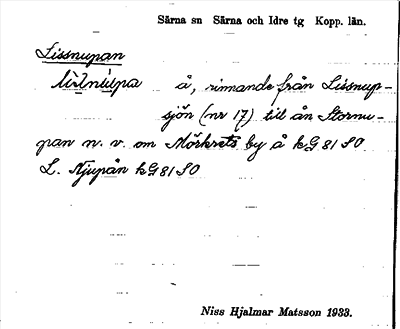 Särna sn Särna och Idre tg Kopp. län.
Lissnupan
å, rinnande från Lissnup-
sjön (nr 17) till ån Stornu-
pan n. v. om Mörkrets by å kG 81 SO
L. Njupån kG 81 SO
Niss Hjalmar Matsson 1933.